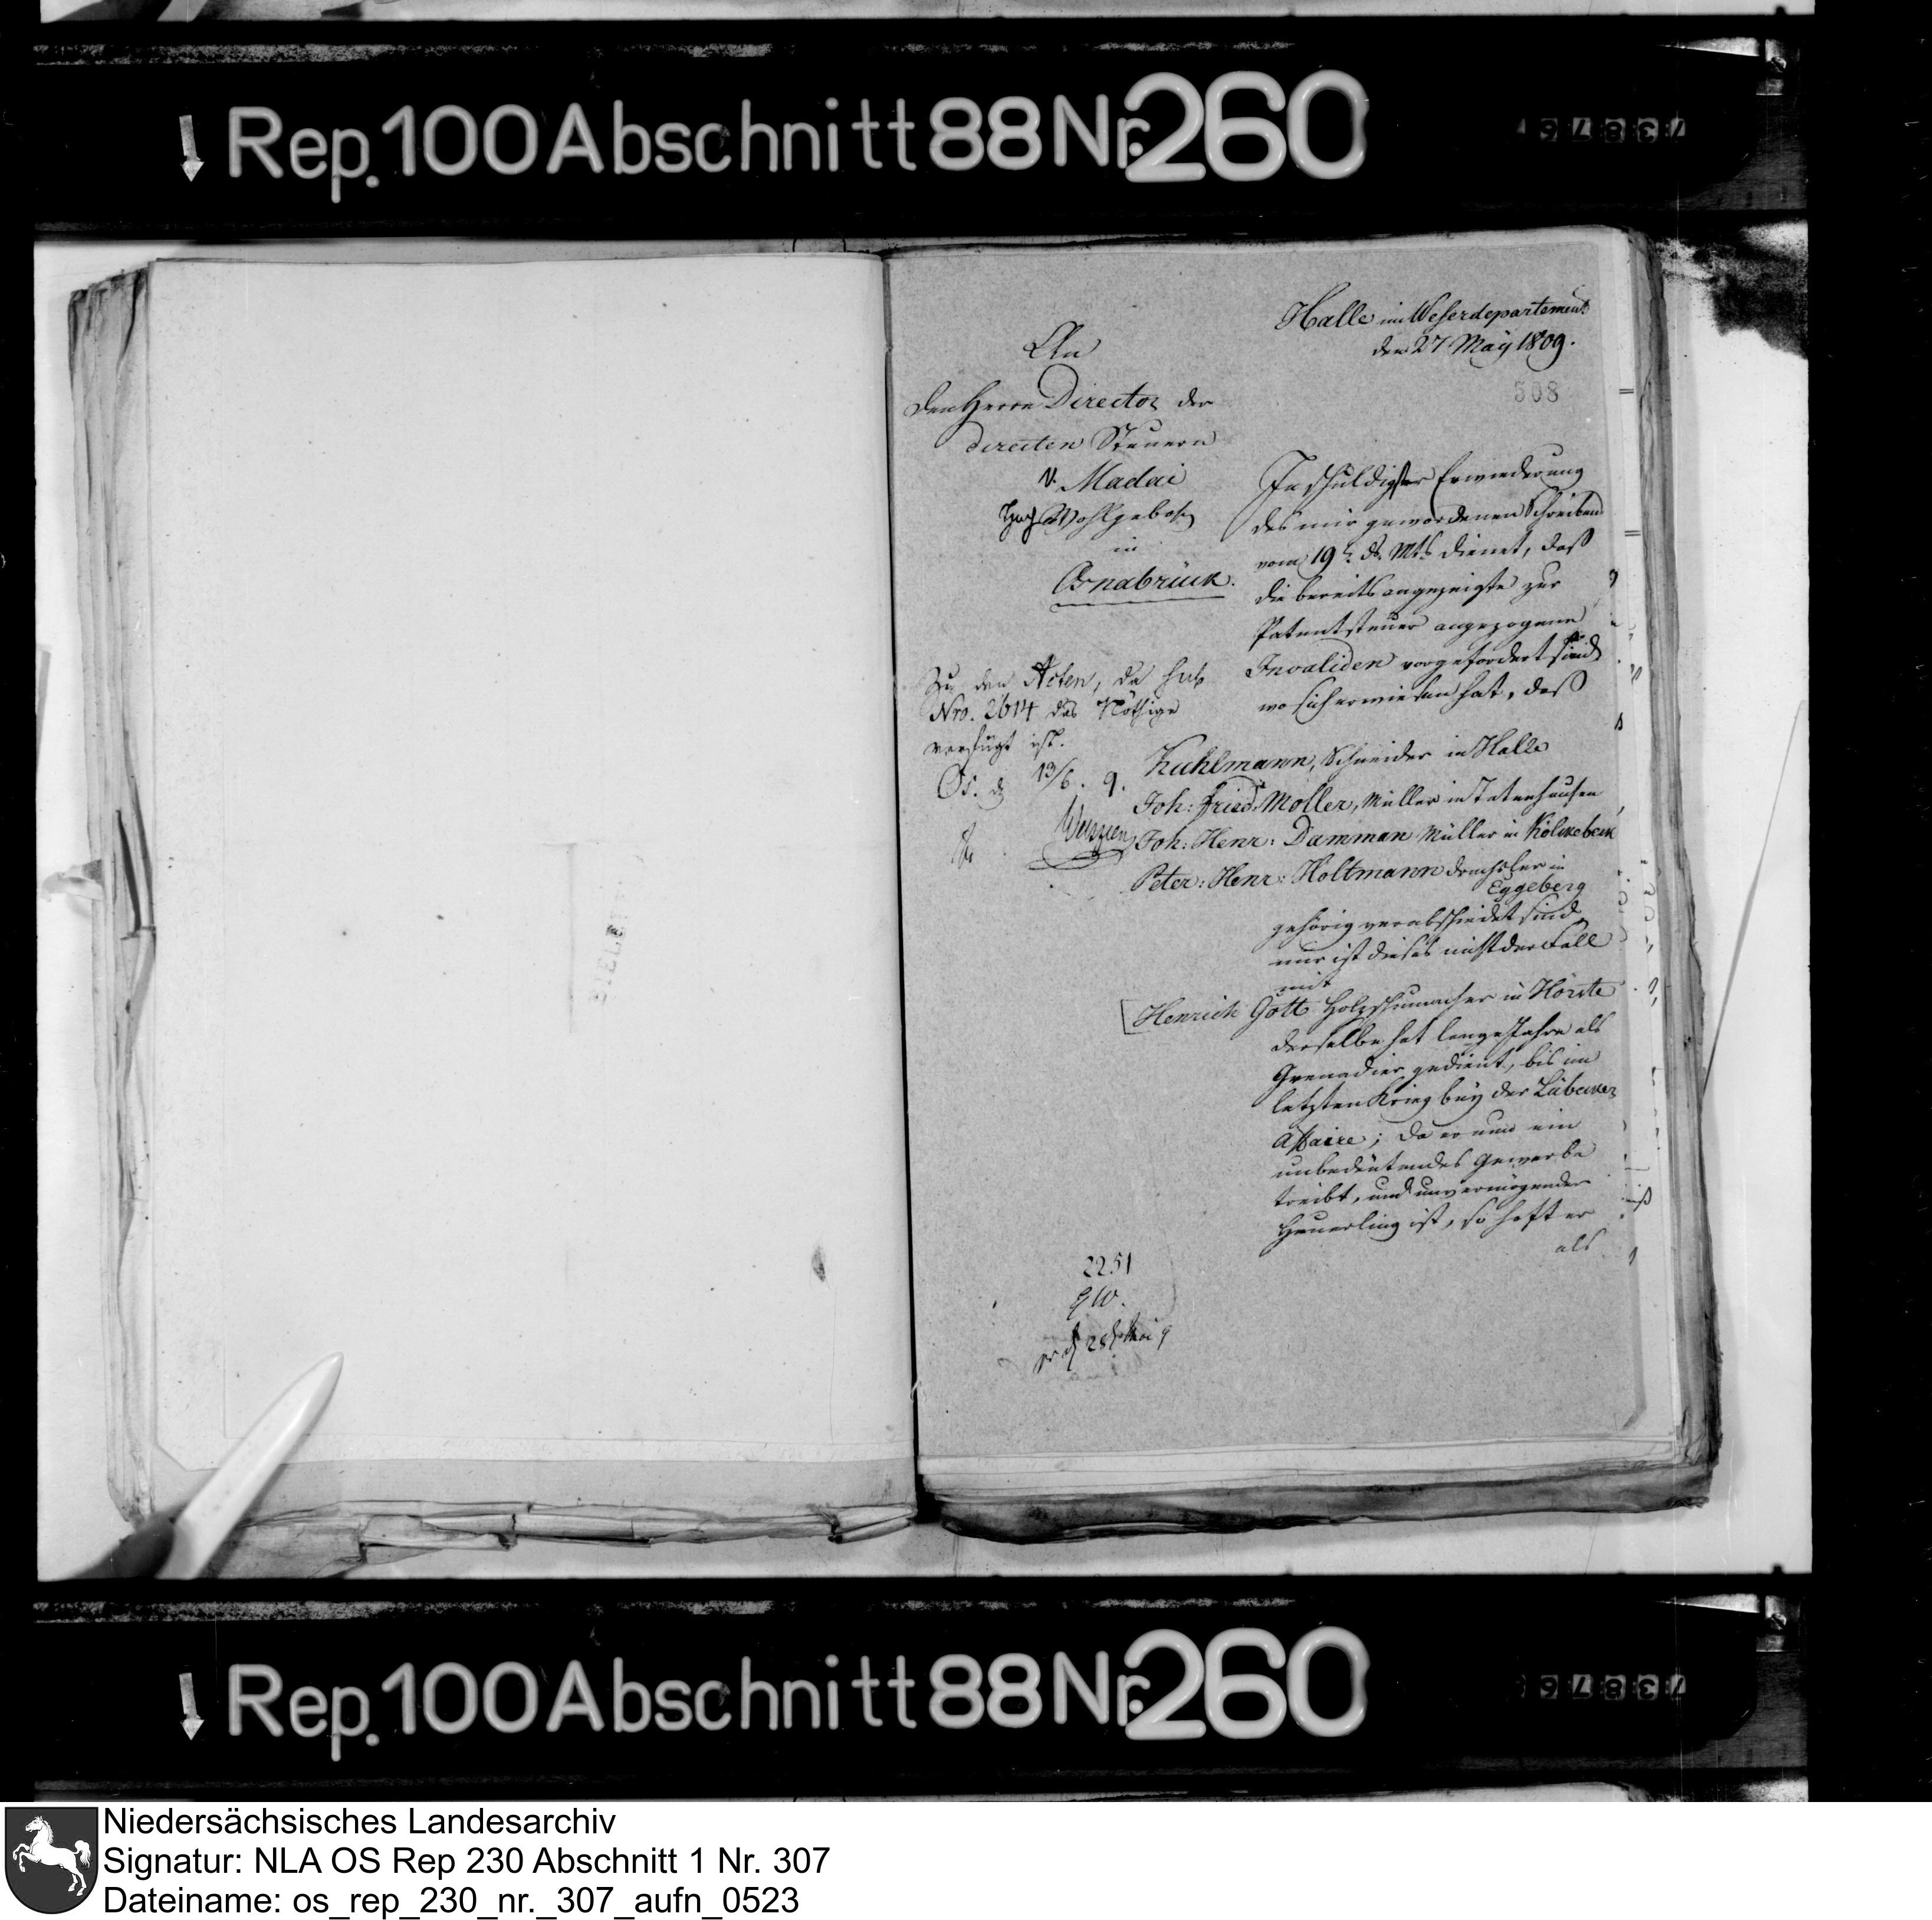 Rep. 100 Abschnitt 88 Nr. 260
Halle im Weserdepartement
den 27 May 1809.
308
An
den Herrn Director der
directen Steuern
v. Madai
Hoch Wohlgebohr
in
Osnabrück.
In schuldigster Erwiederung
des mir gewordenen Schreibens
vom 19t ds. Mts dienet, daß
die bereits angezeigte zur
Patentsteuer angezogene
Invaliden vorgefordert sind
wo sich erwiesen hat, daß
Kuhlmann, Schneider in Halle
Joh: Fried: Moller, Müller in Tatenhausen
Joh: Henr: Damman Müller in Kölkebeck
Peter: Henr: Holtmann Drechsler in
Eggeberg
gehörig verabschiedet sind,
nur ist dieses nicht der Fall
mit
Henrich Gott Holzschumacher in Hörste
derselbe hat lange Jahre als
Grenadier gedient, bis im
letzten Krieg bey der Lübecker
Affaire; da er nun ein
unbedeutendes Gewerbe
treibt, und unvermögender
Heuerling ist, so hofft er
als
Zu den Acten, da sub
Nro. 2614 das Nöthige
verfügt ist.
Os. d 13/6. 9.
2251
28t Mai 9
Rep. 100 Abschnitt 88 Nr. 260
Niedersächsisches Landesarchiv
Signatur: NLA OS Rep 230 Abschnitt 1 Nr. 307
Dateiname: os_rep_230_nr._307_aufn_0523